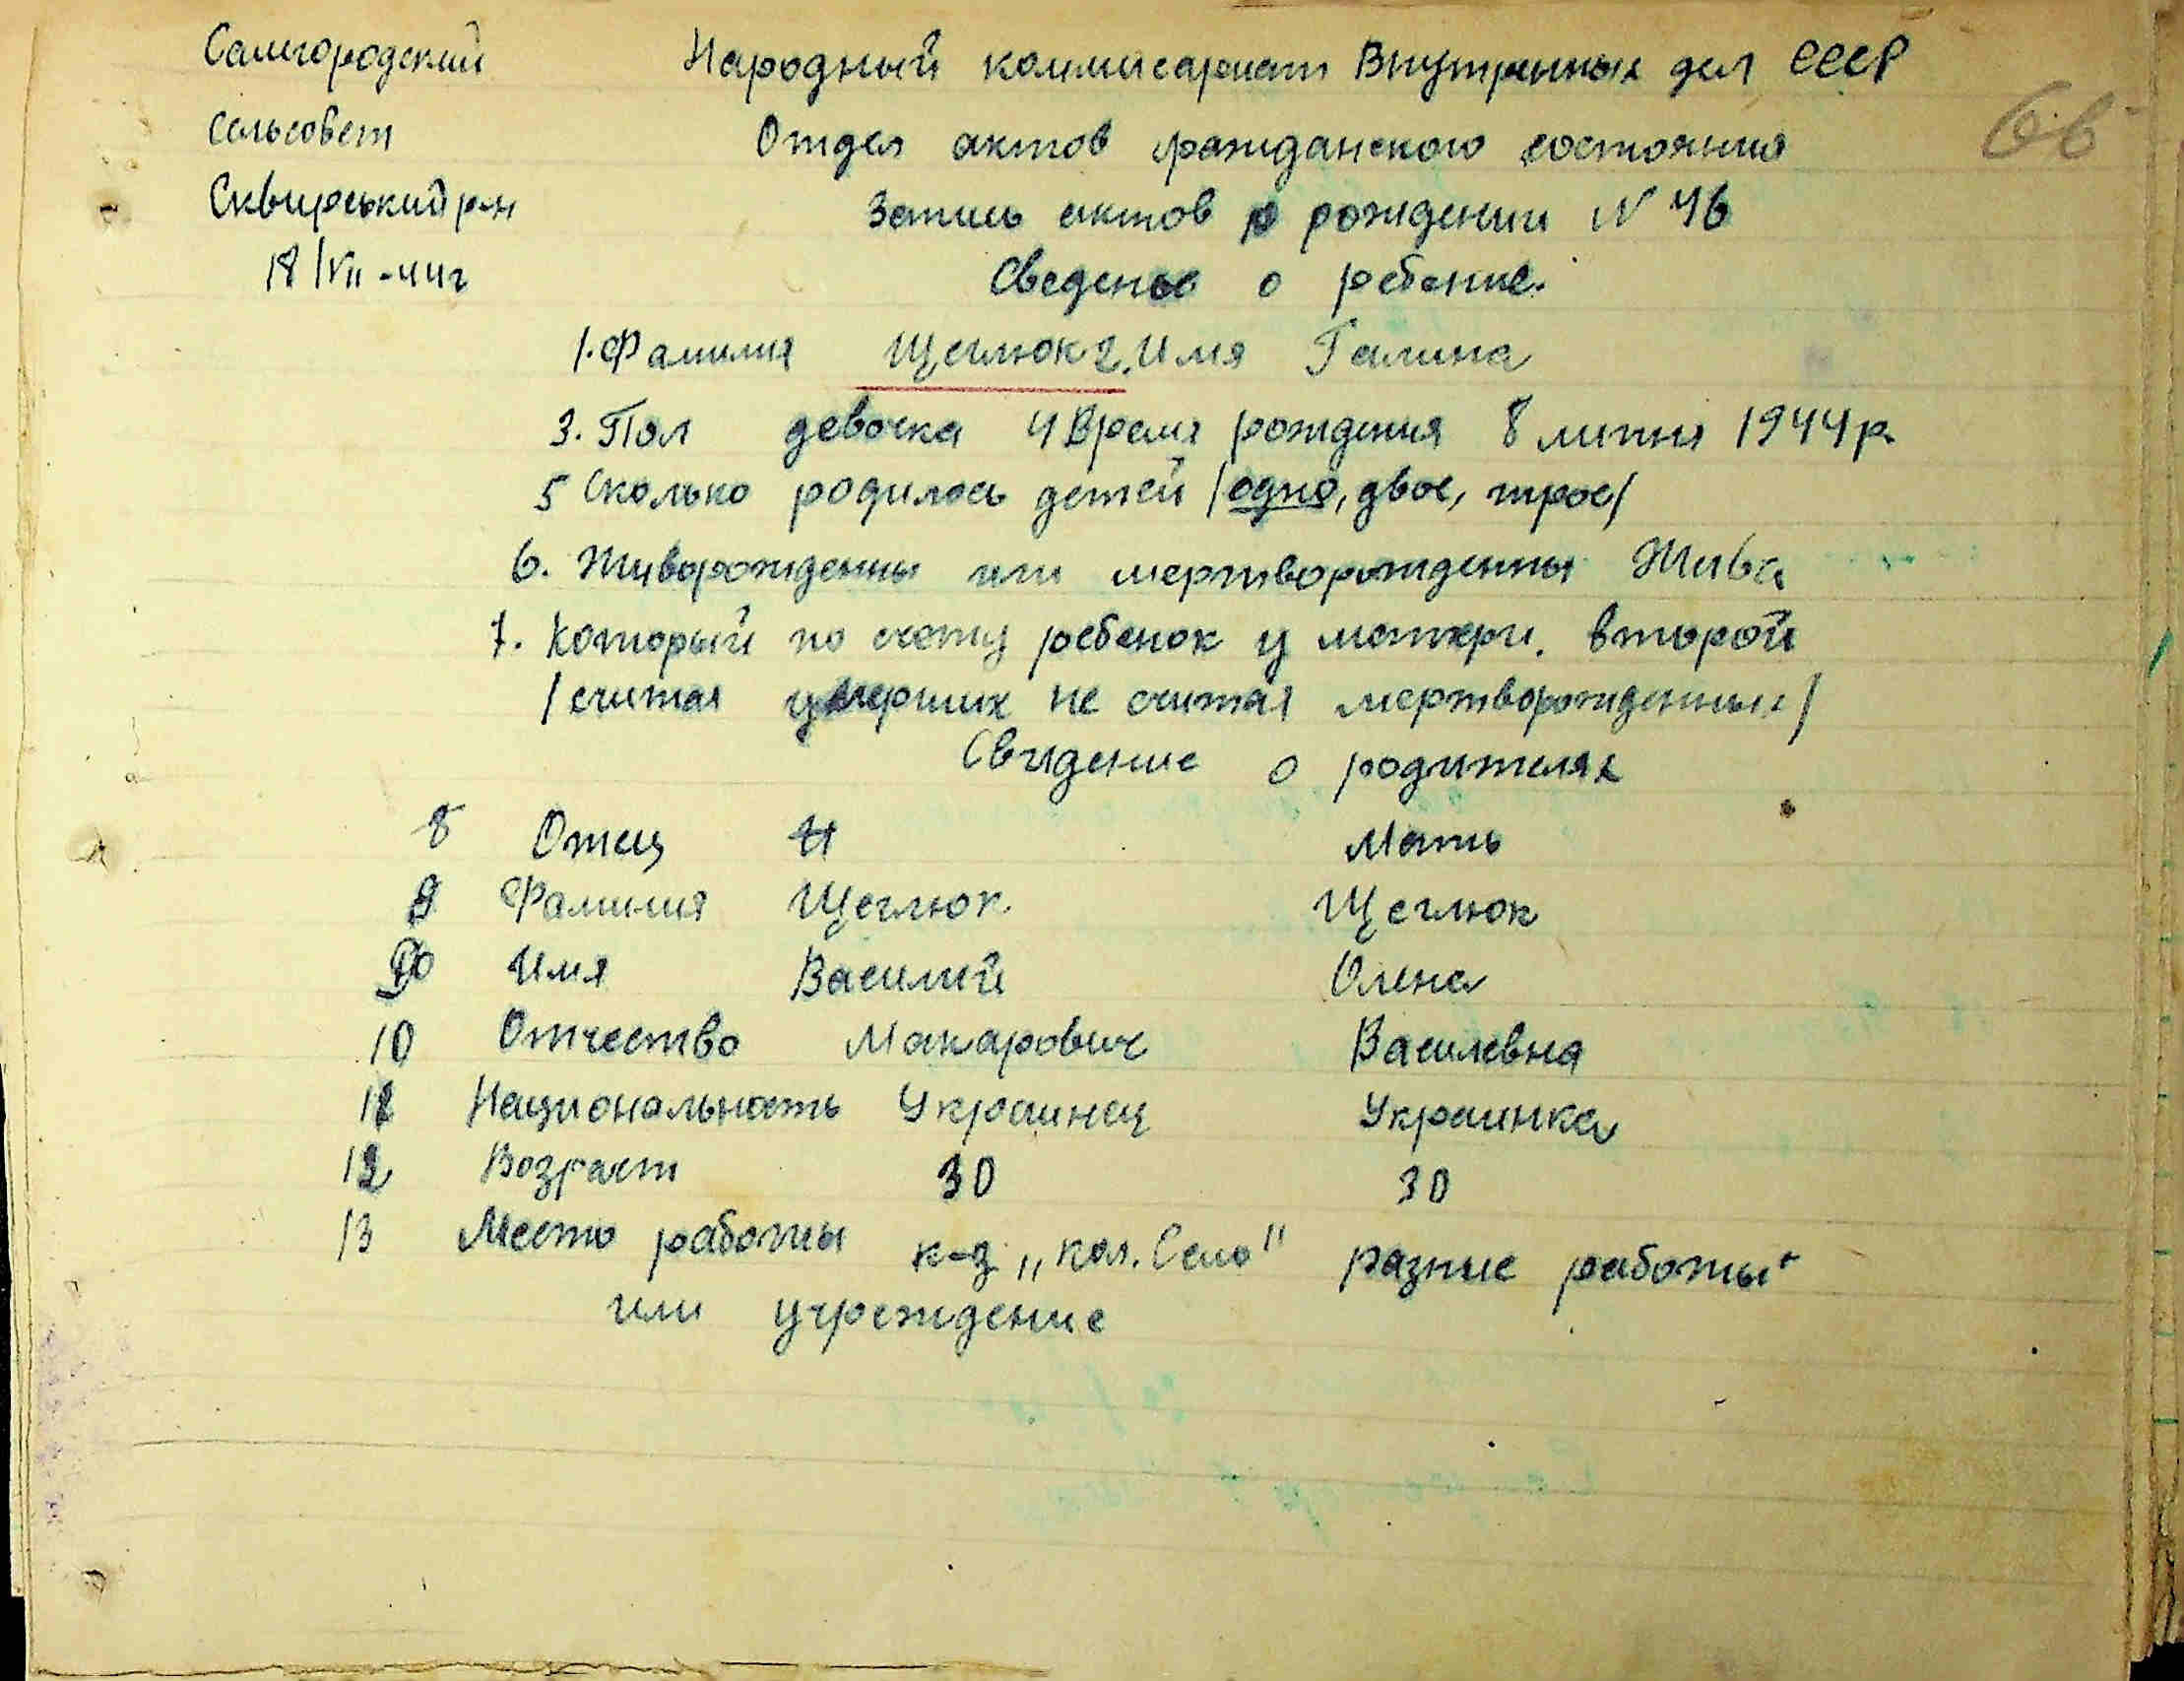 Самгородский Народный коммисариат Внутренных дел СССР
сельсовет Отдел актов гражданского состояния
Сквирський р-н Запись актов о рождении N 46
18/VII-44г Сведенье о ребенке.
1. Фамилия Щеглюк 2. Имя Галина
3. Пол девочка 4 Время рождения 8 липня 1944 р.
5 Сколько родилось детей /одно, двое, трое/
6. Живорожденны или мертворожденны Жива
7. Который по счету ребенок у матери. второй
/считая умерших не считая мертворожденных/
Сведение о родителях
8 Отец Мать
9 Фамилия Щеглюк. Щеглюк
Имя Василий Олена
10 Отчество Макарович Василевна
Национальность Украинец Украинка
12 Возраст 30 30
13 Место работы к-з „Кол. Село" разные работы
или учреждение